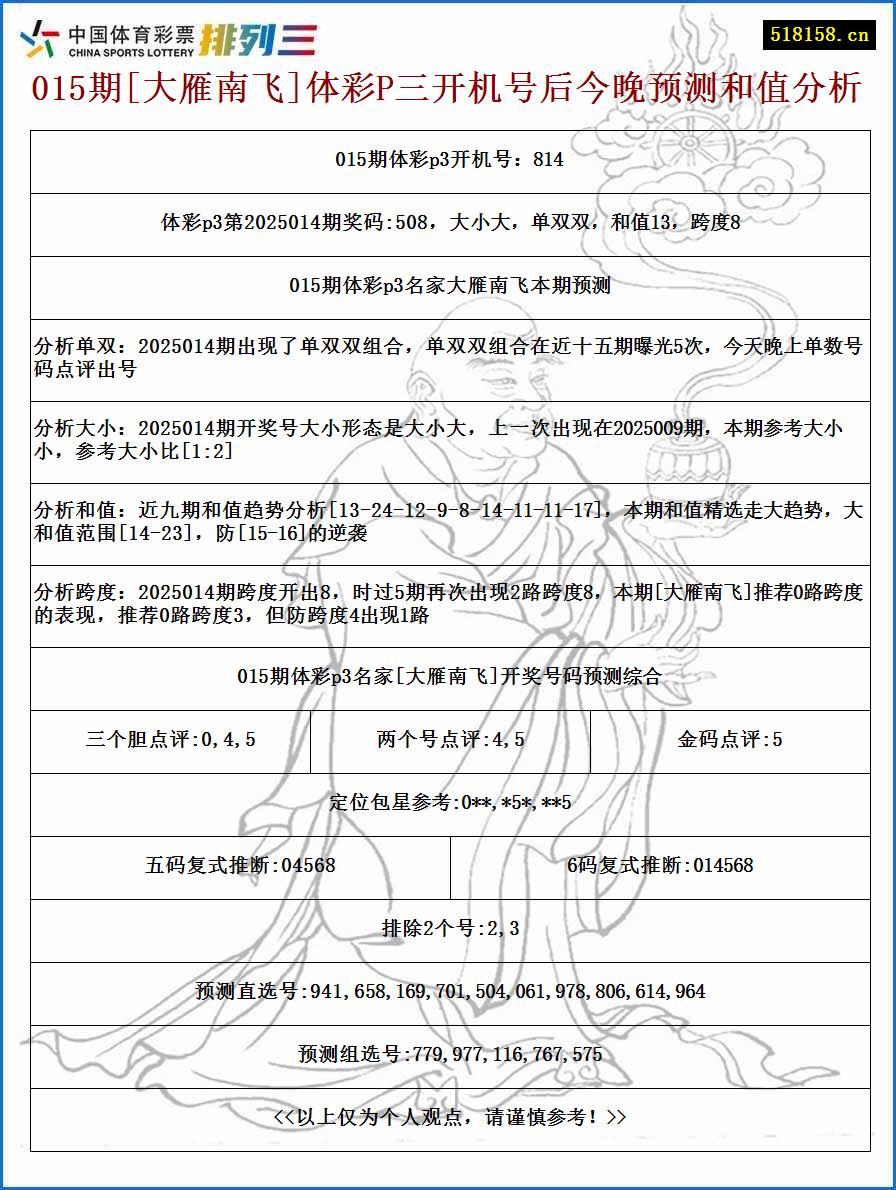 中国体育彩票
CHINA SPORTS LOTTERY
排列三
518158.cn
015期[大雁南飞]体彩P三开机号后今晚预测和值分析
015期体彩p3开机号：814
体彩p3第2025014期奖码:508，大小大，单双双，和值13，跨度8
015期体彩p3名家大雁南飞本期预测
分析单双：2025014期出现了单双双组合，单双双组合在近十五期曝光5次，今天晚上单数号
码点评出号
分析大小：2025014期开奖号大小形态是大小大，上一次出现在2025009期，本期参考大小
小，参考大小比[1:2]
分析和值：近九期和值趋势分析[13-24-12-9-8-14-11-11-17]，本期和值精选走大趋势，大
和值范围[14-23]，防[15-16]的逆袭
分析跨度：2025014期跨度开出8，时过5期再次出现2路跨度8，本期[大雁南飞]推荐0路跨度
的表现，推荐0路跨度3，但防跨度4出现1路
015期体彩p3名家[大雁南飞]开奖号码预测综合
三个胆点评:0,4,5
两个号点评:4,5
金码点评:5
定位包星参考:0**,*5*,**5
五码复式推断:04568
6码复式推断:014568
排除2个号:2,3
预测直选号:941,658,169,701,504,061,978,806,614,964
预测组选号:779,977,116,767,575
<<以上仅为个人观点，请谨慎参考！>>